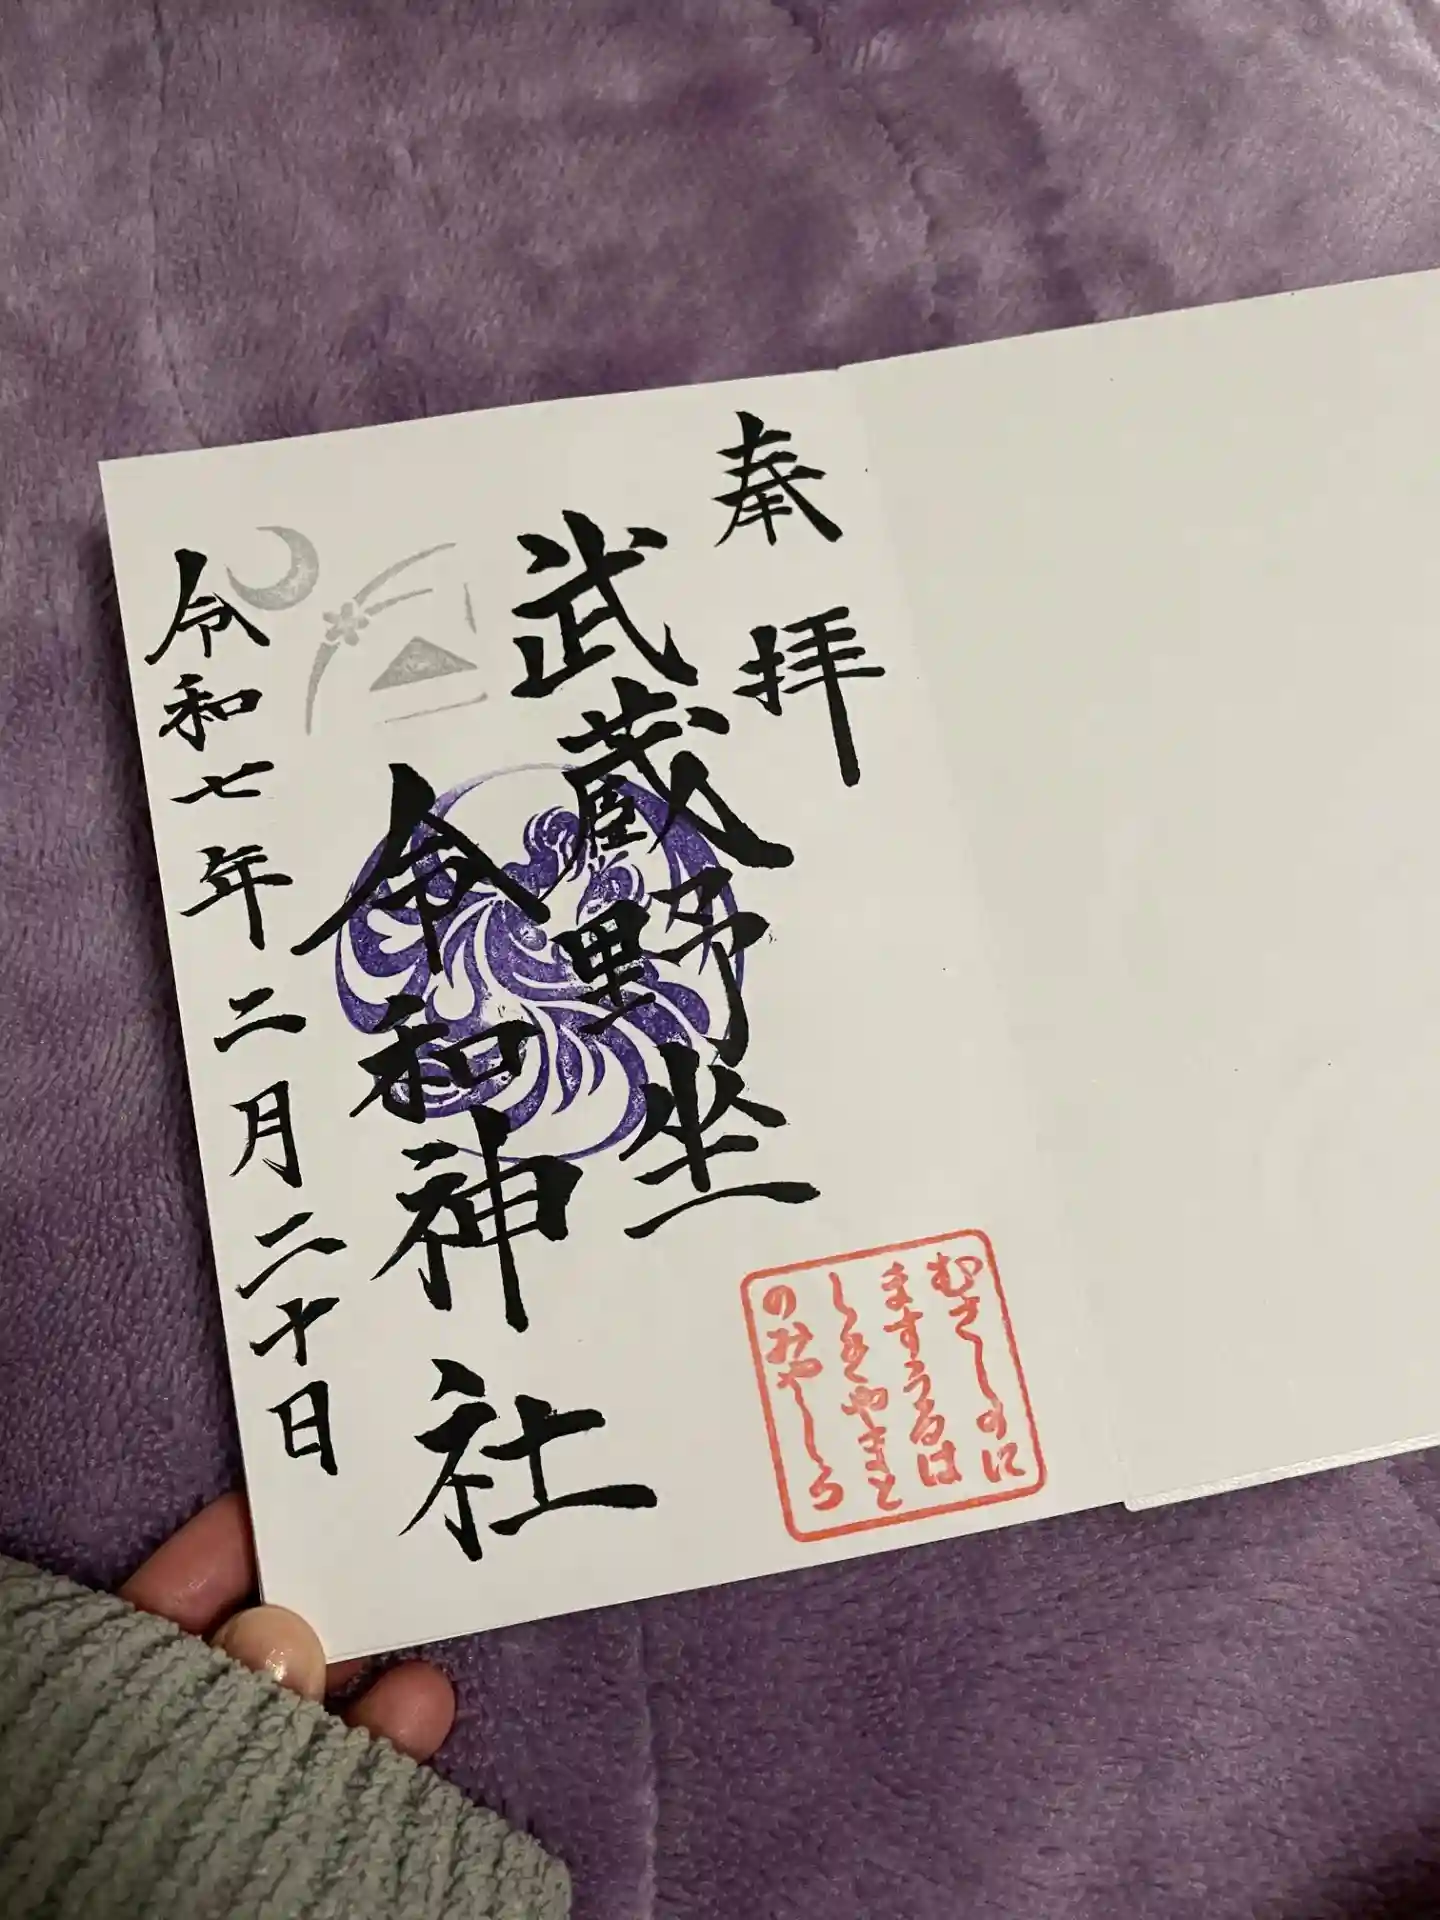 奉拝
武蔵野坐
令和神社
令和七年二月二十日
むさしのに
ますうるは
しきやまと
のみやしろ